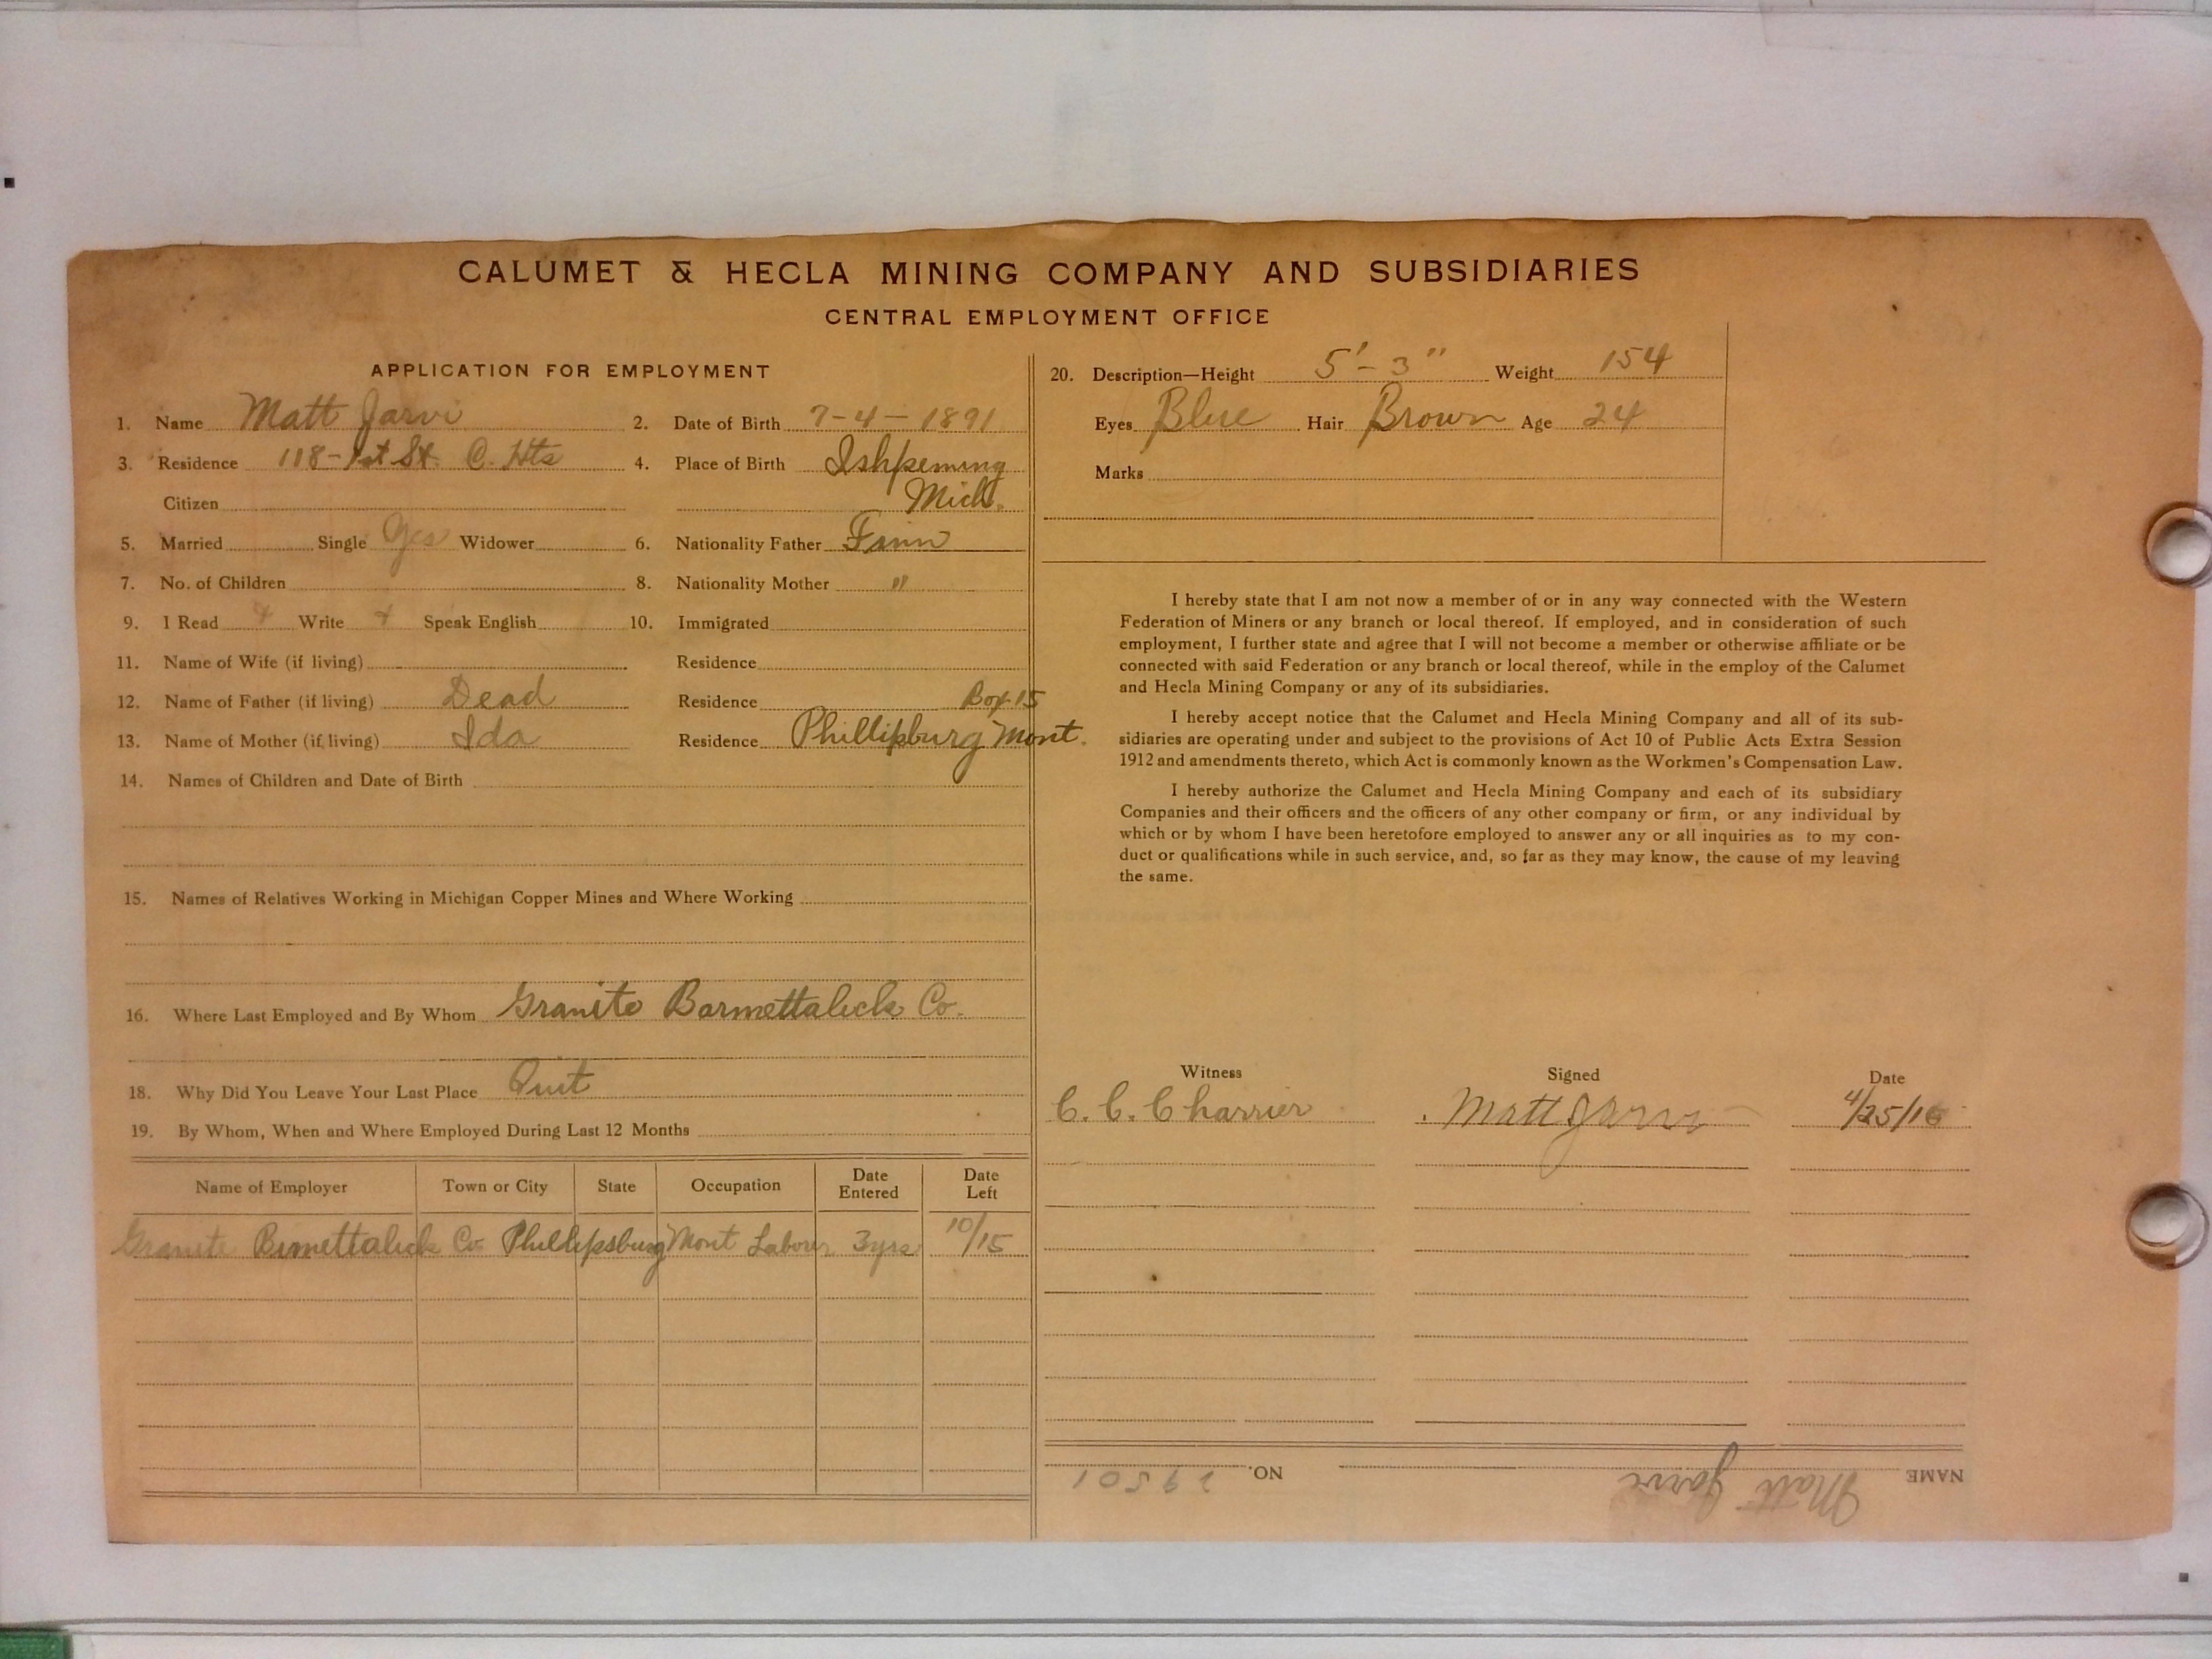 CALUMET & HECLA MINING COMPANY AND SUBSIDIARIES
CENTRAL EMPLOYMENT OFFICE
APPLICATION FOR EMPLOYMENT
1. Name Matt Jarvi 2. Date of Birth 7-4-1891
3. Residence 118-1st St. C. Hts 4. Place of Birth Ishpeming
Citizen Mich.
5. Married Single Yes Widower 6. Nationality Father Finn
7. No. of Children 8. Nationality Mother "
9. I Read Write Speak English 10. Immigrated
11. Name of Wife (if living) Residence
12. Name of Father (if living) Dead Residence Box 15
13. Name of Mother (if living) Ida Residence Phillipburg Mont.
14. Names of Children and Date of Birth
15. Names of Relatives Working in Michigan Copper Mines and Where Working
16. Where Last Employed and By Whom Granite Barmettalick Co.
18. Why Did You Leave Your Last Place Quit
19. By Whom, When and Where Employed During Last 12 Months
Name of Employer Town or City State Occupation Date Entered Date Left
Granite Bimettalick Co Phillipsburg Mont Laborer 3yrs 10/15
20. Description—Height 5'-3" Weight 154
Eyes Blue Hair Brown Age 24
Marks
I hereby state that I am not now a member of or in any way connected with the Western
Federation of Miners or any branch or local thereof. If employed, and in consideration of such
employment, I further state and agree that I will not become a member or otherwise affiliate or be
connected with said Federation or any branch or local thereof, while in the employ of the Calumet
and Hecla Mining Company or any of its subsidiaries.
I hereby accept notice that the Calumet and Hecla Mining Company and all of its sub-
sidiaries are operating under and subject to the provisions of Act 10 of Public Acts Extra Session
1912 and amendments thereto, which Act is commonly known as the Workmen's Compensation Law.
I hereby authorize the Calumet and Hecla Mining Company and each of its subsidiary
Companies and their officers and the officers of any other company or firm, or any individual by
which or by whom I have been heretofore employed to answer any or all inquiries as to my con-
duct or qualifications while in such service, and, so far as they may know, the cause of my leaving
the same.
Witness Signed Date
C. C. Charrier Matt Jarvi 4/25/16
NAME Matt Jarvi NO. 29501